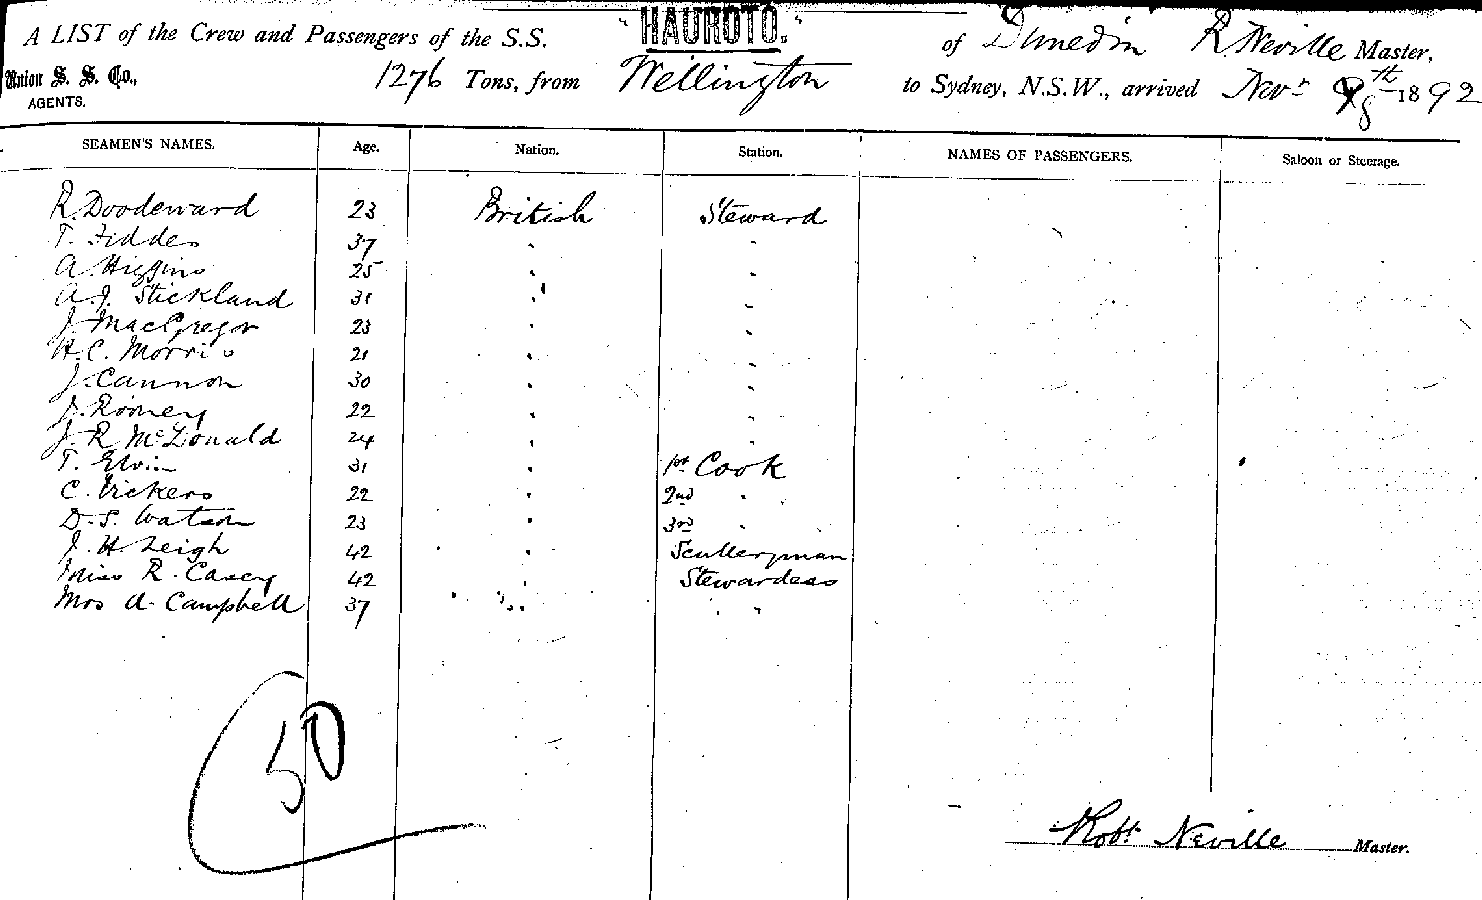 A LIST of the Crew and Passengers of the S.S. "HAUROTO." of Dunedin R. Neville Master,
Union S. S. Co., 1276 Tons, from Wellington to Sydney, N.S.W., arrived Novr 8th 1892
AGENTS.
SEAMEN'S NAMES. Age. Nation. Station. NAMES OF PASSENGERS. Saloon or Steerage.
R. Doodeward 23 British Steward
T. Fiddes 37 " "
A. Higgins 25 " "
A. J. Stickland 31 " "
J. MacGregor 23 " "
H. C. Morris 21 " "
J. Cannon 30 " "
J. Romey 22 " "
J. R McDonald 24 " "
T. Elvin 31 " 1st Cook
C. Vickers 22 " 2nd "
D. S. Watson 23 " 3rd "
J. H Leigh 42 " Sculleryman
Miss R. Casey 42 " Stewardess
Mrs A. Campbell 37 " "
50
Robt Neville Master.